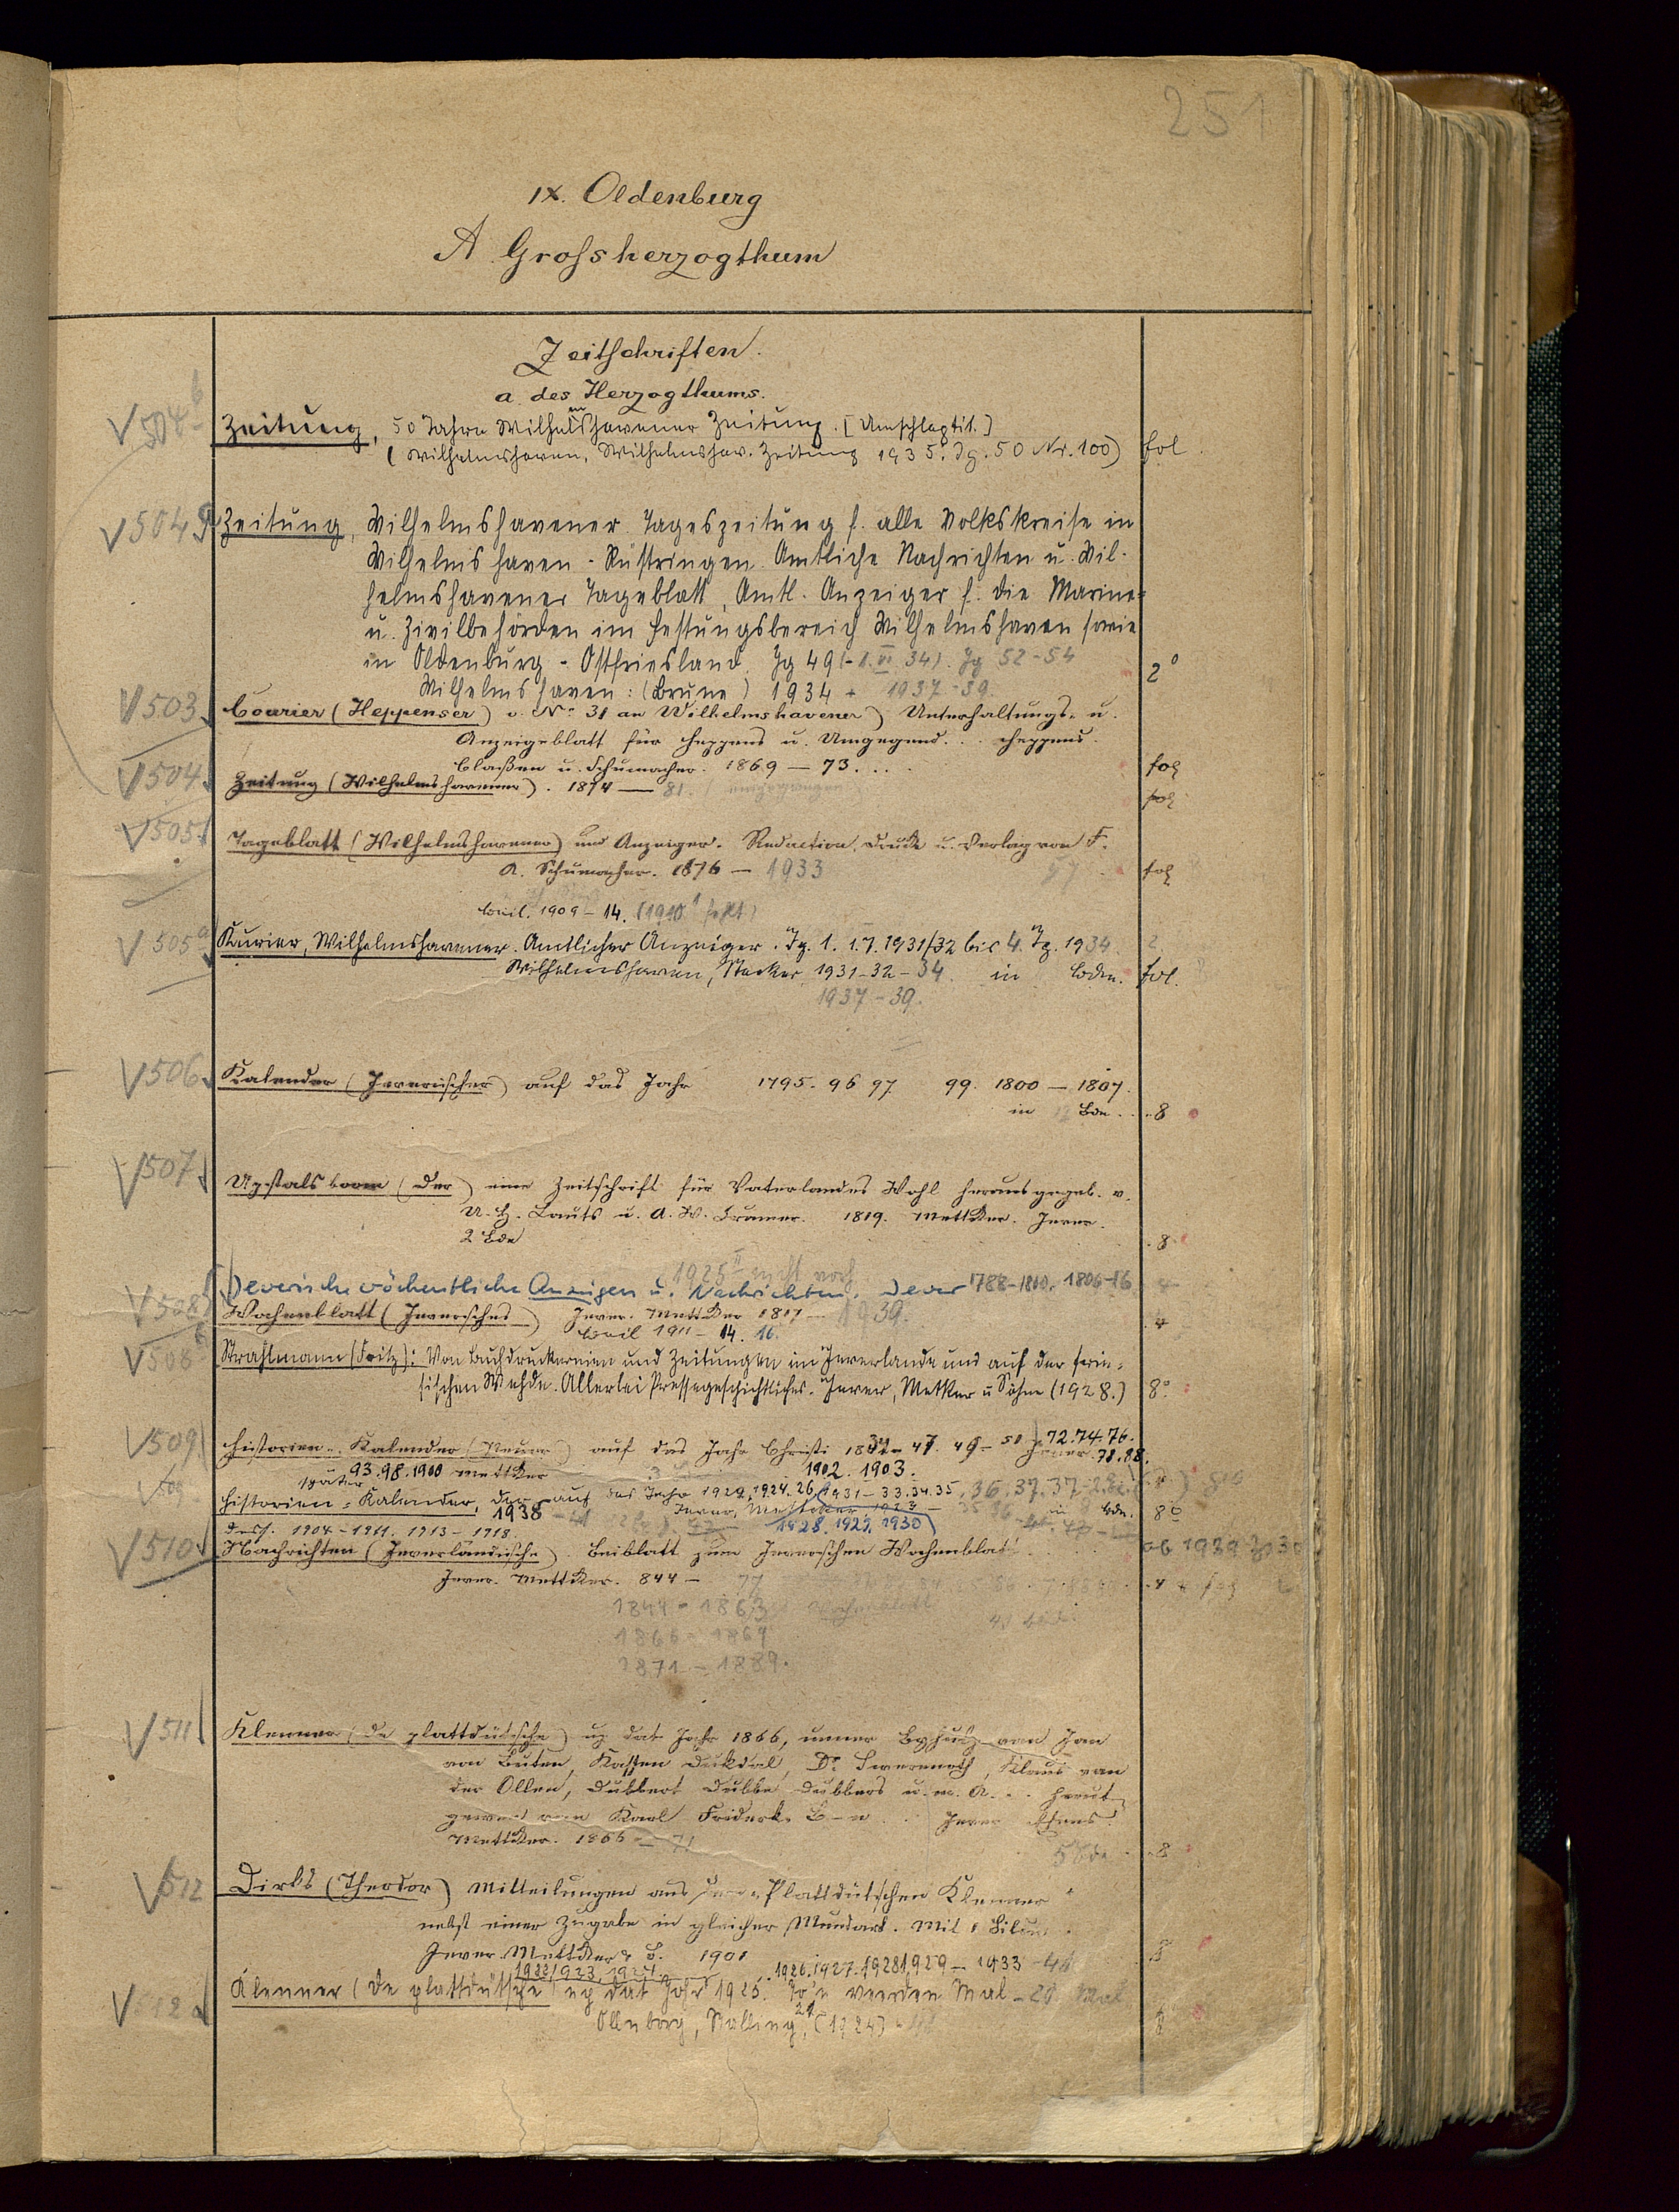 251
IX. Oldenburg
A Grossherzogthum
Zeitschriften.
a. des Herzogthums.
V 504 b
Zeitung, 50 Jahre Wilhelmshavener Zeitung. [Umschlagtit.]
(Wilhelmshaven, Wilhelmshav. Zeitung 1935. Jg. 50 Nr. 100) fol.
V 504 a Zeitung, Wilhelmshavener. Tageszeitung f. alle Volkskreise in
Wilhelmshaven-Rüstringen. Amtliche Nachrichten u. Wil-
helmshavener Tageblatt, Amtl. Anzeiger f. die Marine-
u. Zivilbehörden im Festungsbereich Wilhelmshaven sowie
in Oldenburg-Ostfriesland. Jg 49 (-1. VI. 34). Jg 52-54
Wilhelmshaven: (Brune) 1934 + 1937-39. 2°
V 503 Courier (Heppenser) v. No 31 an Wilhelmshavener) Unterhaltungs- u.
Anzeigeblatt für Heppens u. Umgegend... Heppens.
Claßen u. Schumacher. 1869 — 73. ... fol
V 504 Zeitung (Wilhelmshavener). 1874 — 81. fol
V 505 Tageblatt (Wilhelmshavener) und Anzeiger. Redaction, Druck u. Verlag von F.
A. Schumacher. 1876 — 1933 fol
Beil. 1909-14. (1910 fehlt)
V 505 a Kurier, Wilhelmshavener. Amtlicher Anzeiger. Jg. 1. 1.7.1931/32 bis 4. Jg. 1934.
Wilhelmshaven, 1931-32-34. in Bdn. fol.
1937-39.
V 506 Kalender (Jeverischer) auf das Jahr 1795. 96 97. 99. 1800 — 1807.
in 12 Bdn. .8
V 507 Upstalsboom (Der) eine Zeitschrift für Vaterlandes Wohl herausgegeb. v.
U. H. Lauts u. A. W. Cramer. 1819. Mettcker. Jever.
2 Bde .8
1925 II nicht vorh
Jeverische wöchentliche Anzeigen u. Nachrichten. Jever 1788-1800. 1806-16 4
V 508 Wochenblatt (Jeversches) Jever. Mettcker 1817 — 1939. .4
Beil 1911-14. 16.
V 508 b Strahlmann (Fritz): Von Buchdruckereien und Zeitungen im Jeverlande und auf der frie-
sischen Wehde. Allerlei Pressegeschichtliches. Jever, Mettker u Söhne (1928.) 8°
V 509 Historien-Kalender (Neuer) auf das Jahr Christi 1837-47. 49-50 72.74.76.
Jever 78.88.
93.98.1900 Mettcker 1902. 1903.
später
Historien-Kalender, der auf das Jahr 1922, 1924. 26. 1931-33.34.35. 36. 37.
1938 Jever, Mettcker, 1923 — in Bdn. 8°
Dess. 1904-1911. 1913-1918. 1928. 1929. 1930
V 510 Nachrichten (Jeverländische). Beiblatt zum Jeverschen Wochenblatt.
Jever. Mettcker. 844 — 77 .4
1844-1863 Wochenblatt
1866-1869
1871-1889.
V 511 Klenner (De plattdütsche) up dat Johr 1866, unner Byhulp van Jan
von Buten, Kassen Dukdal, Dr. , Klaus van
der Ollen, Dubbert Dubbe Dubbers u. m. A. . . herut-
gewen van Karl Friderk. B-n . . Jever
Mettcker. 1866 — 71 5 Bde. .8
V 512 Dirks (Theodor) Mitteilungen aus „Plattdütschen Klenner“
nebst einer Zugabe in gleicher Mundart. Mit 1
Jever. Mettcker & S. 1901
1922/1923, 1924. 1926.1927.1928 1929 — 1933 - 41
V 512 a Klenner (De plattdütsche) up dat Johr 1925. To'n veerden Mal - 29. Mal
Ollnborg, Stalling, (1924)